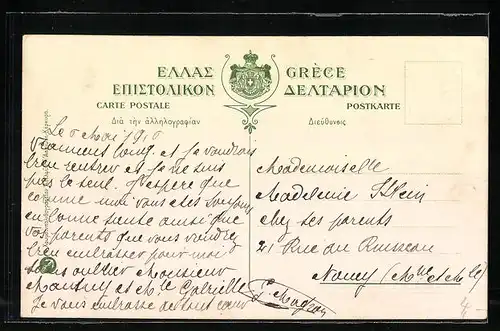 ΕΛΛΑΣ GRÈCE
ΕΠΙΣΤΟΛΙΚΟΝ ΔΕΛΤΑΡΙΟΝ
CARTE POSTALE POSTKARTE
Διὰ τὴν ἀλληλογραφίαν Διεύθυνσις
Le Mai
long. et Je voudrais
bien rentrer et je ne suis
pas le seul. J'espère que
comme moi vous etes
en bonne sante ainsi que
vos parents que vous
bien embrasser pour moi
sans oublier Monsieur
et Mlle Gabrielle
Je vous embrasse de tout coeur
Mademoiselle
Madeleine
chez ses parents
21 Rue du Ruisseau
Nancy (Mthe et Mlle)